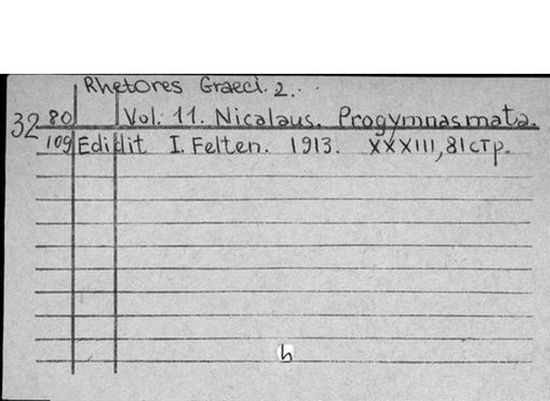 Rhetores Graeci. 2.
32 80 Vol. 11. Nicalaus. Progymnasmata.
109 Edidit I. Felten. 1913. XXXIII, 81 стр.
h